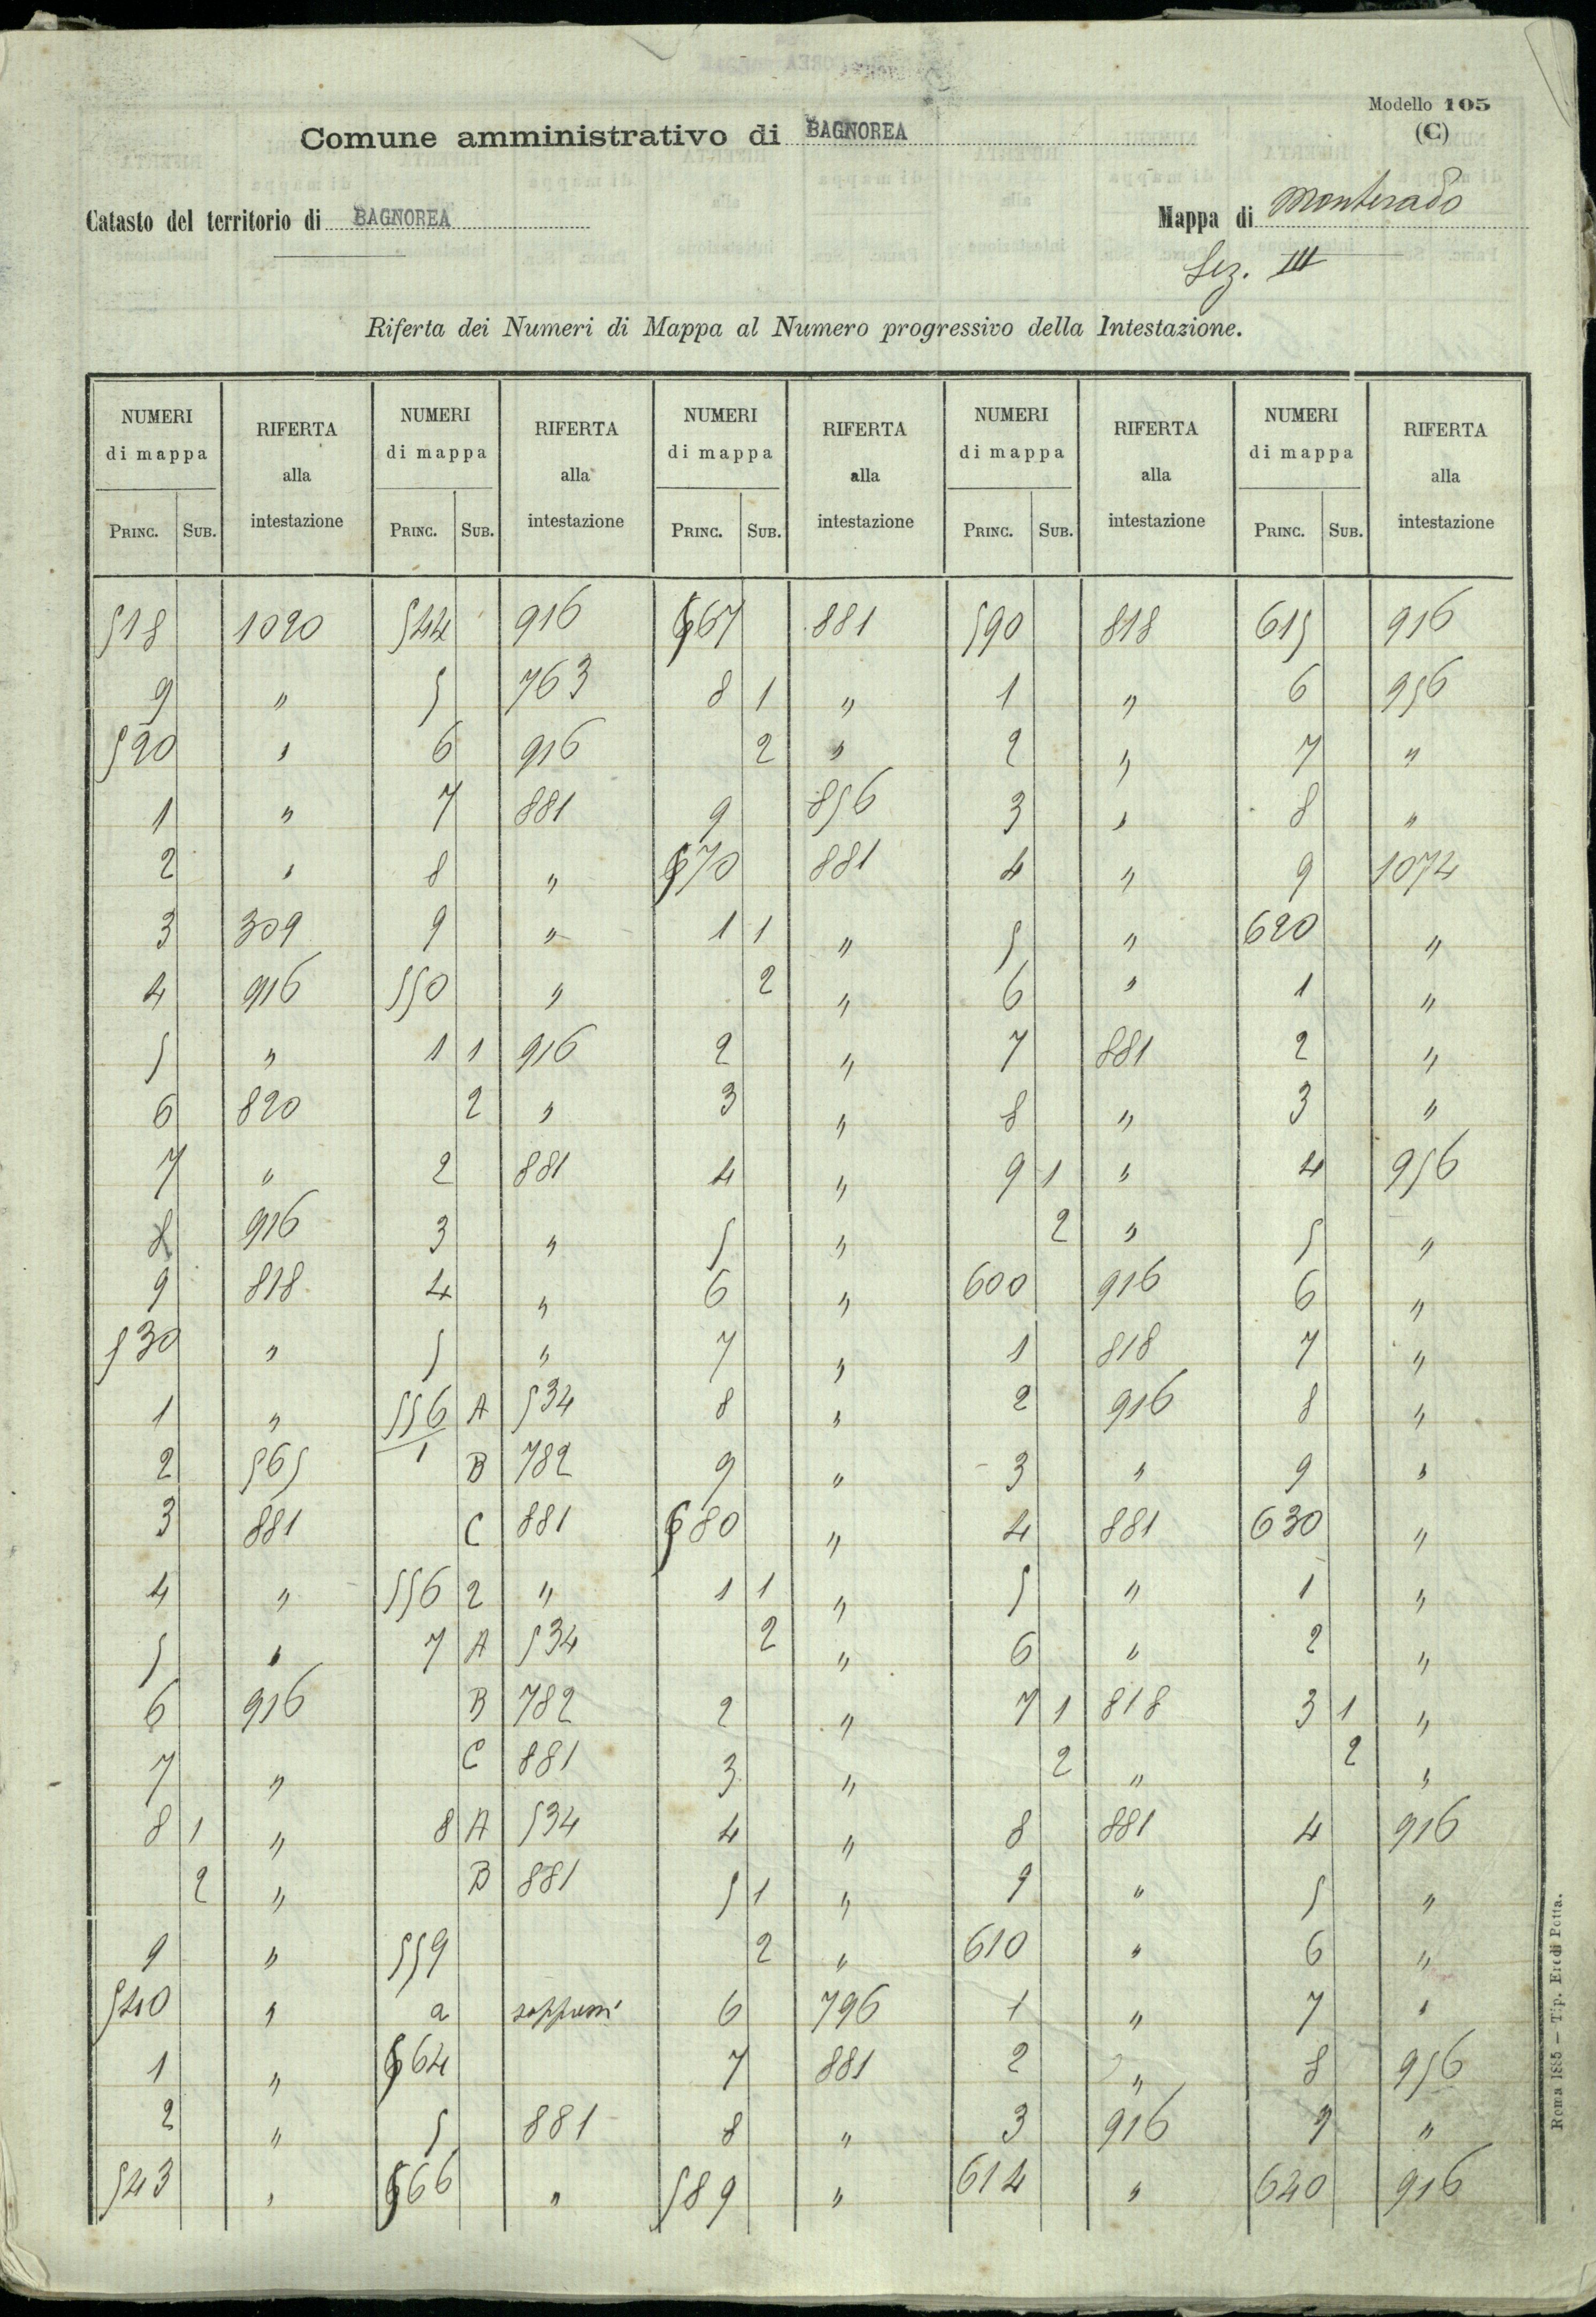 Modello 105
(C)
Comune amministrativo di BAGNOREA
Catasto del territorio di BAGNOREA
Mappa di Monterado
Sez. III
Riferta dei Numeri di Mappa al Numero progressivo della Intestazione.
NUMERI di mappa RIFERTA alla intestazione NUMERI di mappa RIFERTA alla intestazione NUMERI di mappa RIFERTA alla intestazione NUMERI di mappa RIFERTA alla intestazione NUMERI di mappa RIFERTA alla intestazione
PRINC. SUB. PRINC. SUB. PRINC. SUB. PRINC. SUB. PRINC. SUB.
518 1020 544 916 567 881 590 818 615 916
9 " 5 763 8 1 " 1 " 6 956
520 " 6 916 2 " 2 " 7 "
1 " 7 881 9 856 3 " 8 "
2 " 8 " 570 881 4 " 9 1074
3 309 9 " 1 1 " 5 " 620 "
4 916 550 " 2 " 6 " 1 "
5 " 1 1 916 2 " 7 881 2 "
6 820 2 " 3 " 8 " 3 "
7 " 2 881 4 " 9 1 " 4 956
8 916 3 " 5 " 2 " 5 "
9 818 4 " 6 " 600 916 6 "
530 " 5 " 7 " 1 818 7 "
1 " 556/1 A 534 8 " 2 916 8 "
2 565 B 782 9 " 3 " 9 "
3 881 C 881 580 " 4 881 630 "
4 " 556 2 " 1 1 " 5 " 1 "
5 " 7 A 534 2 " 6 " 2 "
6 916 B 782 2 " 7 1 818 3 1 "
7 " C 881 3 " 2 " 2 "
8 1 " 8 A 534 4 " 8 881 4 916
2 " B 881 5 1 " 9 " 5 "
9 " 559 2 " 610 " 6 "
540 " a soppressi 6 796 1 " 7 "
1 " 564 7 881 2 " 8 956
2 " 5 881 8 " 3 916 9 "
543 " 566 " 589 " 614 " 640 916
Roma 1885 — Tip. Eredi Botta.